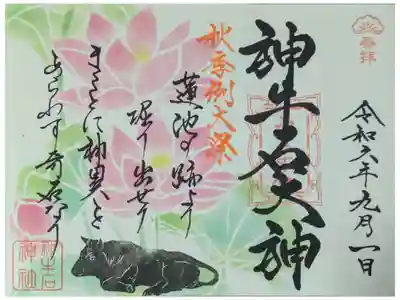 奉拝
令和六年九月一日
神牛石大神
秋季例大祭
蓮池の跡より
堀り出せり
まことに神異を
あらわす奇石なり